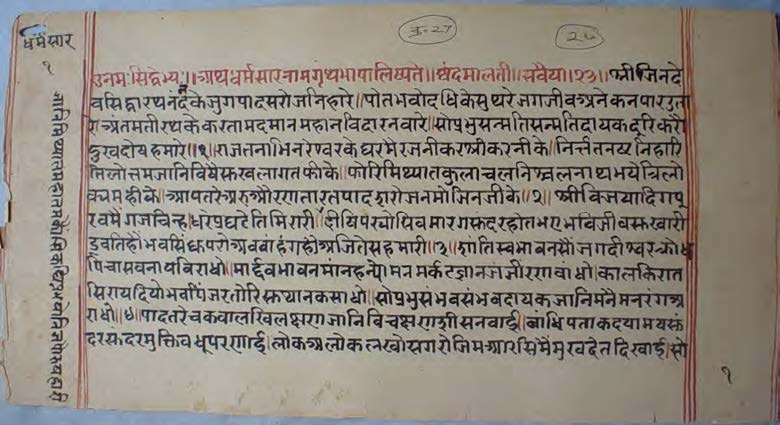 धर्मसार
१
I-27
24
उनमःसिद्धेभ्यः॥अथधर्मसारनामग्रंथभाषालिष्यते॥छंदमालती॥सवैया॥२३॥श्रीजिनदे
वसिद्धारथनंदनकेजुगपादसरोजनिहारे॥पोतभवोदधिकेसुथरेजगजीवअनेकनपारउता
रे॥अंतमतीरथकेकरतामदमानमहानविदारनवारे॥सोप्रभुसन्मतिसन्मतिदायकदूरिकरौ
दुखदोषहमारे॥१॥राजतनाभिनरेश्वरकेघरमेरजनीकरश्रीकरनीके॥निर्त्ततनर्त्यनिहारि
तिलोत्तमजानिविषैसुखलागतफीके॥फोरिमिथ्यातकुलाचलनिश्चलनाथभयेत्रिलो
कमहीके॥आपतरेअरुऔरणतारतपादसरोजनमोजिनजीके॥२॥श्रीविजयादिगए
रवमेंगजचिन्हधरेप्रघटेतिमिरारी॥दीषिपरयोसिवमारगसुंदरहोतभएभविजीवसुखारी
डूवतिहौंभवसिंधपरोअबबांहगहौअजितेसहमारी॥३॥शांतिस्वभावनसौंजगदीश्वरक्रोध
पिचासवनायविराधो॥मार्द्दवभावनमांनहन्योमनमर्कटज्ञानजंजीरणबांधो॥कालकिरात
सिरायदियोभवपिंजरतोरिसुथानकसाधो॥सोप्रभुसंभवसंभवदायकजानिमनैमनरंगअ
राधो॥४॥पादतरेचकवालखिलक्षणजानिविचक्षणशीसनवाई॥बांधिपताकदयामयसुं
दरसुंदरमुक्तिवधूपरणाई॥लोकअलोकलखोसगरोजिमआरसिमैमुखदेतदिखाई॥सो
१